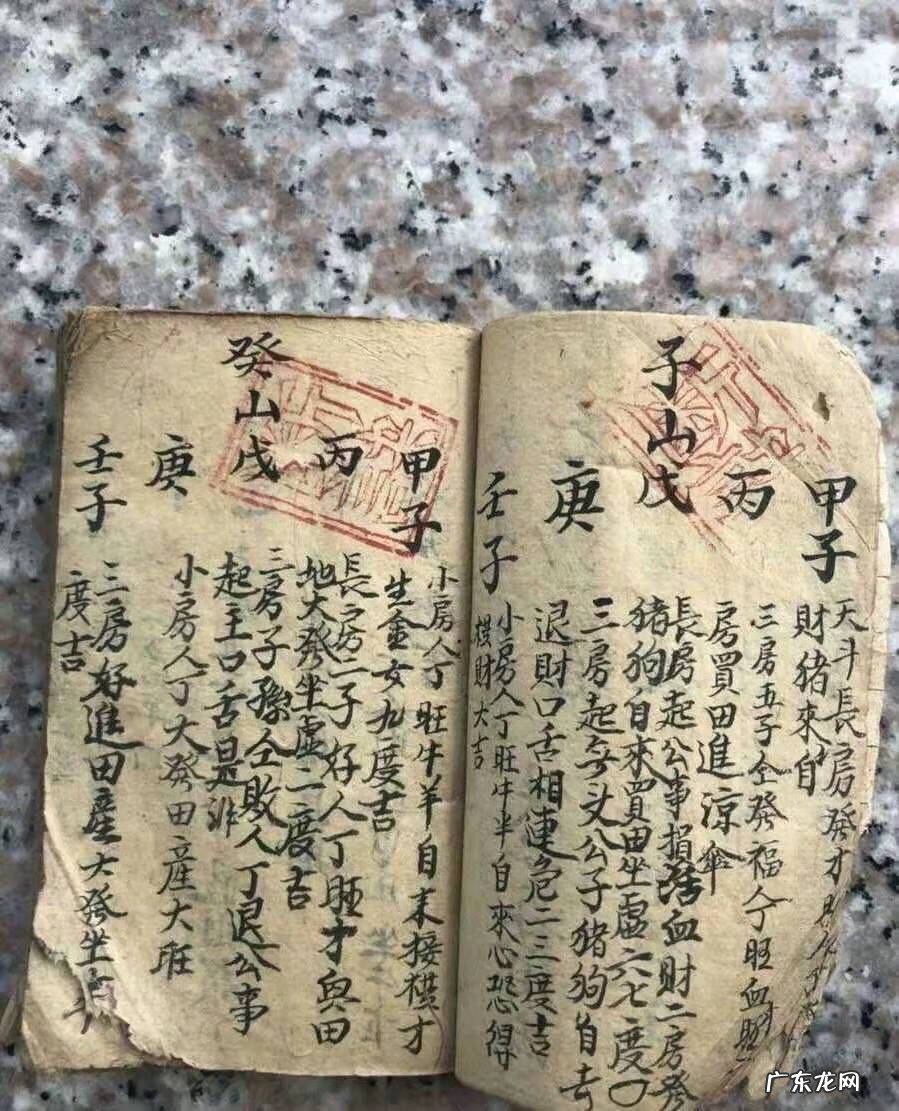 子山
甲子
丙
戊
庚
壬子
天斗長房發才
財猪來自
三房五子仝發福人丁旺血財
房買田進涼傘
長房起公事損活血財二房發
猪狗自來買田坐虛六七度〇
三房起無头公子猪狗自去
退財口舌相連危二三度吉
小房人丁旺牛羊自來心恐得
横財大吉
癸山
甲子
丙
戊
庚
壬子
小房人丁旺牛羊自来接横才
生金女九度吉
長房二子好人丁旺才與田
地大發坐虛一度吉
三房子孫仝敗人丁退公事
起主口舌是非
小房人丁大發田産大旺
三房好進田産大發坐
度吉
广东龙网